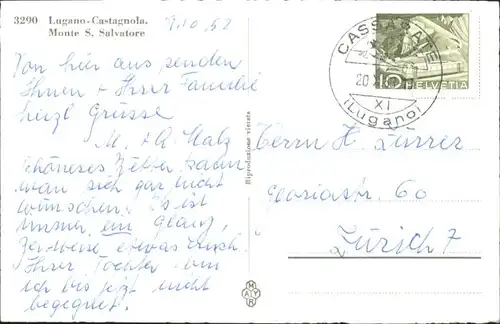 3290 Lugano-Castagnola.
Monte S. Salvatore
9.10.52
Von hier aus senden
Ihnen + Ihrer Familie
herzl Grüsse
M. + A. Walz
Schöneres Wetter kann
man sich gar nicht
wünschen. Es ist
immer ein Glanz,
zeitweise etwas frisch.
Ihrer Tochter bin
ich bis jetzt nicht
begegnet.
Riproduzione vietata
MAYR
CASSARATE
20
XI
(Lugano)
10
HELVETIA
Herrn H. Zurrer
Gloriastr. 60
Zürich 7